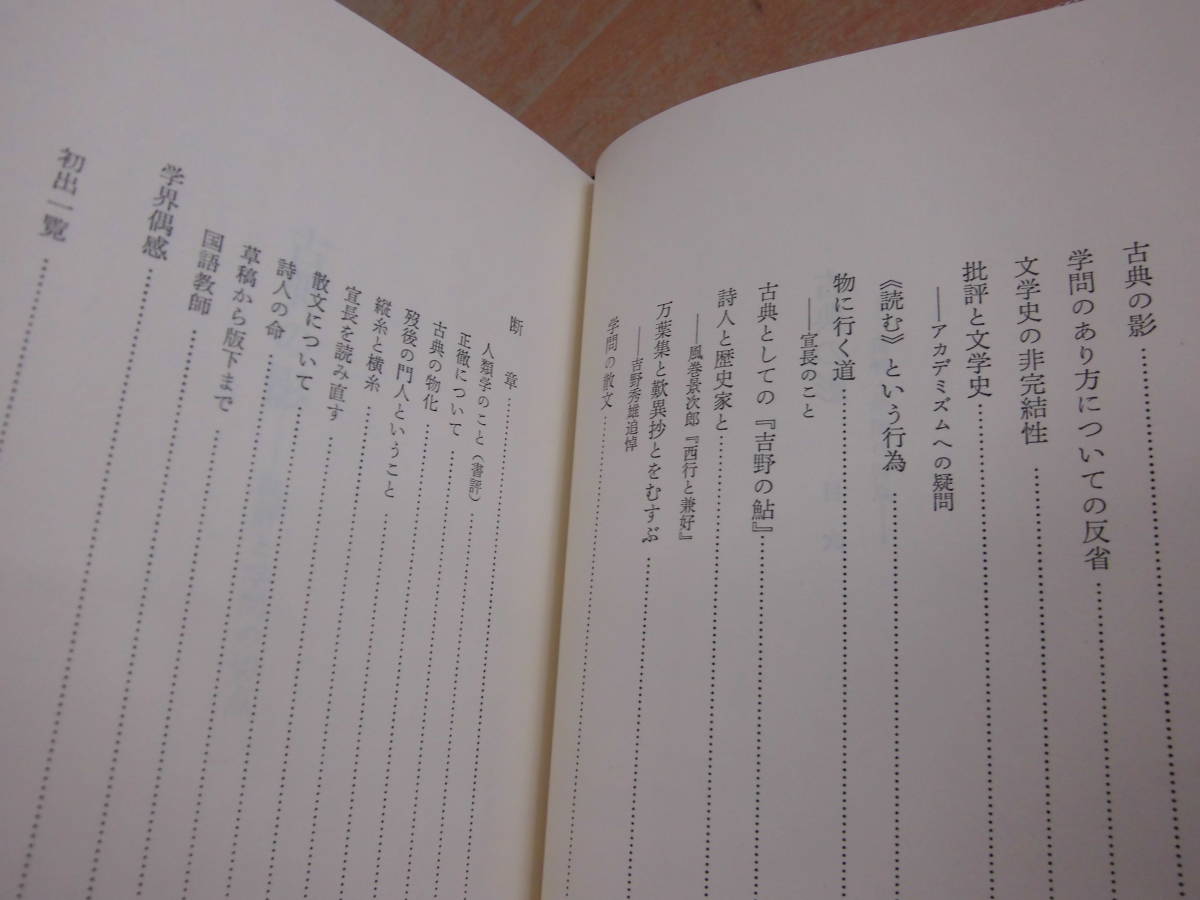 古典の影
学問のあり方についての反省
文学史の非完結性
批評と文学史
――アカデミズムへの疑問
《読む》という行為
物に行く道
――宣長のこと
古典としての『吉野の鮎』
詩人と歴史家と
――風巻景次郎『西行と兼好』
万葉集と歎異抄とをむすぶ
――吉野秀雄追悼
学問の散文
断章
人類学のこと(書評)
正徹について
古典の物化
歿後の門人ということ
縦糸と横糸
宣長を読み直す
散文について
詩人の命
草稿から版下まで
国語教師
学界偶感
初出一覧